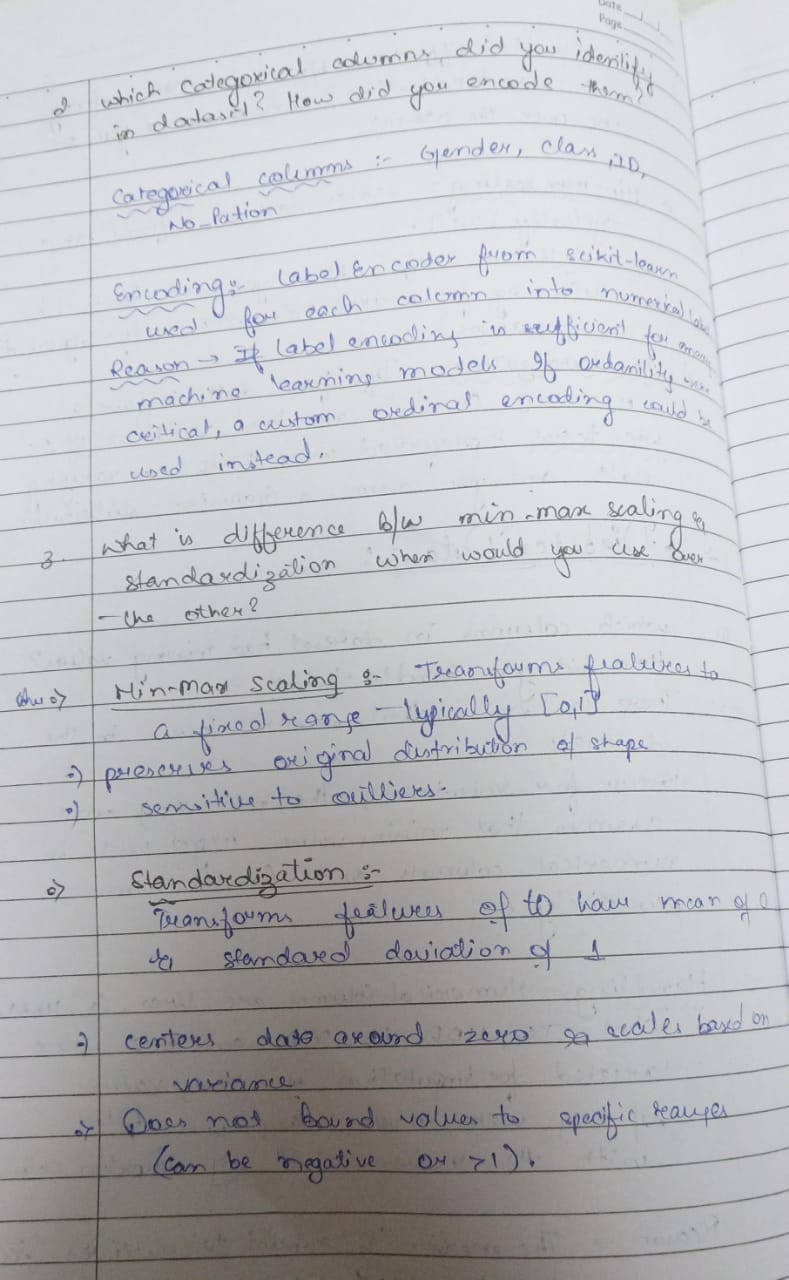 Date
Page
2. which categorical columns did you identify
in dataset? How did you encode them?
Categorical columns :- Gender, class, ID,
No_Pation
Encoding :- Label Encoder from scikit-learn
used for each colemn into numerical
Reason → If label encoding is sufficient for many
machine learning models If ordanility were
critical, a custom ordinal encoding could be
used instead.
3. what is difference b/w min-max scaling &
standardization when would you use over
the other?
Ans Min-Max scaling :- Transforms features to
a fixed range - typically [0,1]
preserves original distribution of shape
sensitive to outliers.
Standardization :-
Transforms features of to have mean of 0
& standard deviation of 1
centers data around zero & scales based on
variance
Does not bound values to specific ranges
(can be negative or >1).